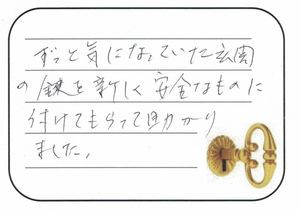 ずっと気になっていた玄関
の錠を新しく安全なものに
付けてもらって助かり
ました。